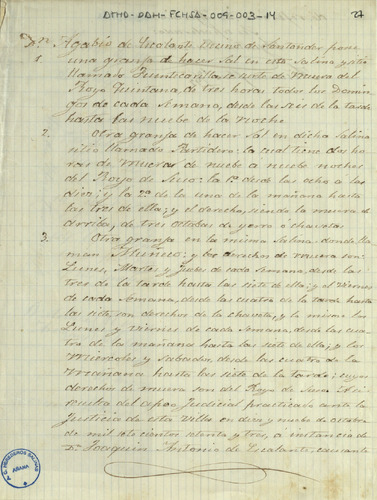 ATHA-DAH-FCHSA-009-003-14
27
Dn. Agabio de Escalante vecino de Santander posee
1. una granja de hacer sal en esta Salina y sitio
llamado Fuentecanilla su serie de Muera del
Royo Quintana de tres horas todos los Domin-
gos de cada Semana, desde las seis de la tarde
hasta las nuebe de la noche
2. Otra granja de hacer sal en dicha Salina
sitio llamado Partidero: la cual tiene dos ho-
ras de Mueras de nuebe a nuebe noches
del Royo de Suso: la 1ª desde las ocho a las
diez; y la 2ª de la una de la mañana hasta
las tres de ella; y el derecho, siendo la muera de
arriba, de tres ochabas de yerro o chavetas
3. Otra granja en la misma Salina donde lla-
man y los derechos de muera son:
Lunes, Martes y Jueves de cada Semana, desde las
tres de la tarde hasta las siete de ella; y el Viernes
de cada Semana, desde las cuatro de la tarde hasta
las siete, son derechos de la chaveta; y la misma los
Lunes y Viernes de cada Semana, desde las cua-
tro de la mañana hasta las siete de ella; y los
Miercoles y Sabados, desde las cuatro de la
Mañana hasta las siete de la tarde: cuyos
derechos de muera son del Royo de Suso. Asi
resulta del apeo Judicial practicado ante la
Justicia de esta Villa en diez y nuebe de octubre
de mil setecientos setenta y tres, a instancia de
Dn. Joaquin Antonio de Escalante, causante
A.C. HEREDEROS SALINAS
AÑANA